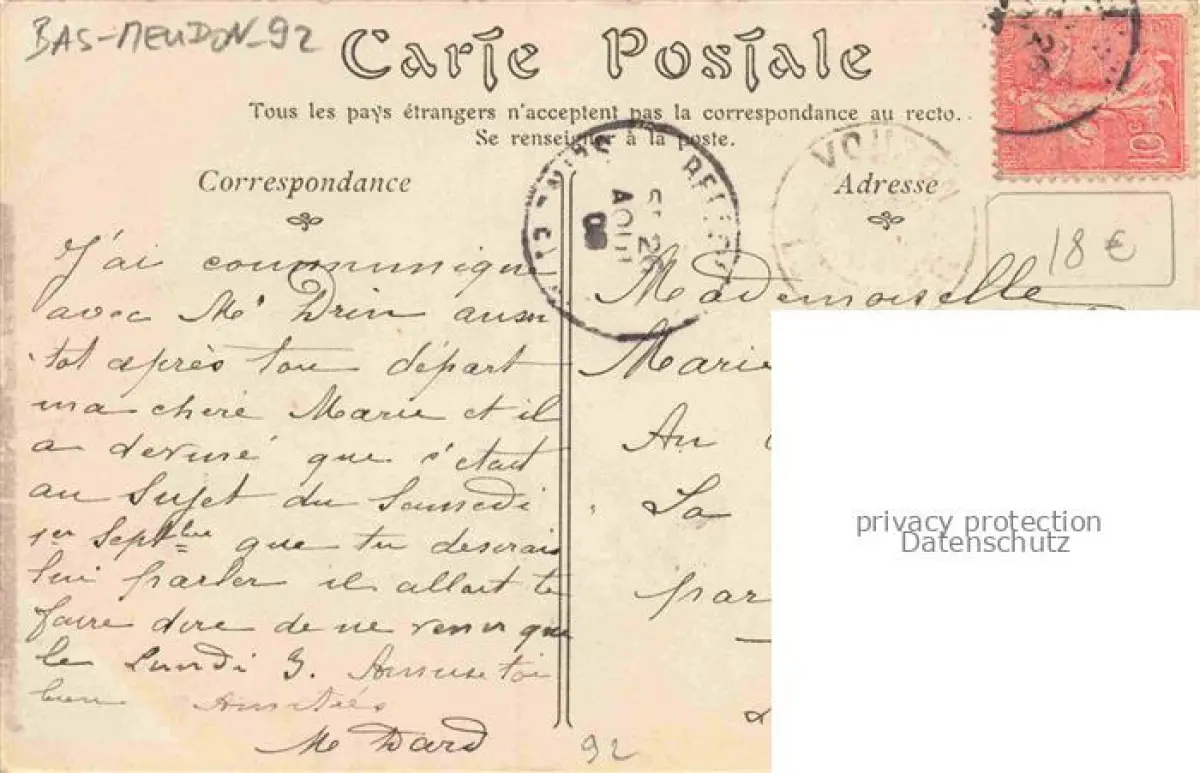 BAS-MEUDON-92
Carte Postale
Tous les pays étrangers n'acceptent pas la correspondance au recto.
Se renseigner à la poste.
Correspondance
J'ai communiqué
avec Mr Drin aussi
tot après ton départ
ma chere Marie et il
a deviné que s'etait
au Sujet du Samedi
1er Septbre que tu desirais
lui parler il allait te
faire dire de ne venir que
le Lundi 3. Amuse toi
bien Amitiés
M Dard
92
Adresse
10c
18 €
AOUT
Mademoiselle
Marie
Au
La
par
privacy protection
Datenschutz